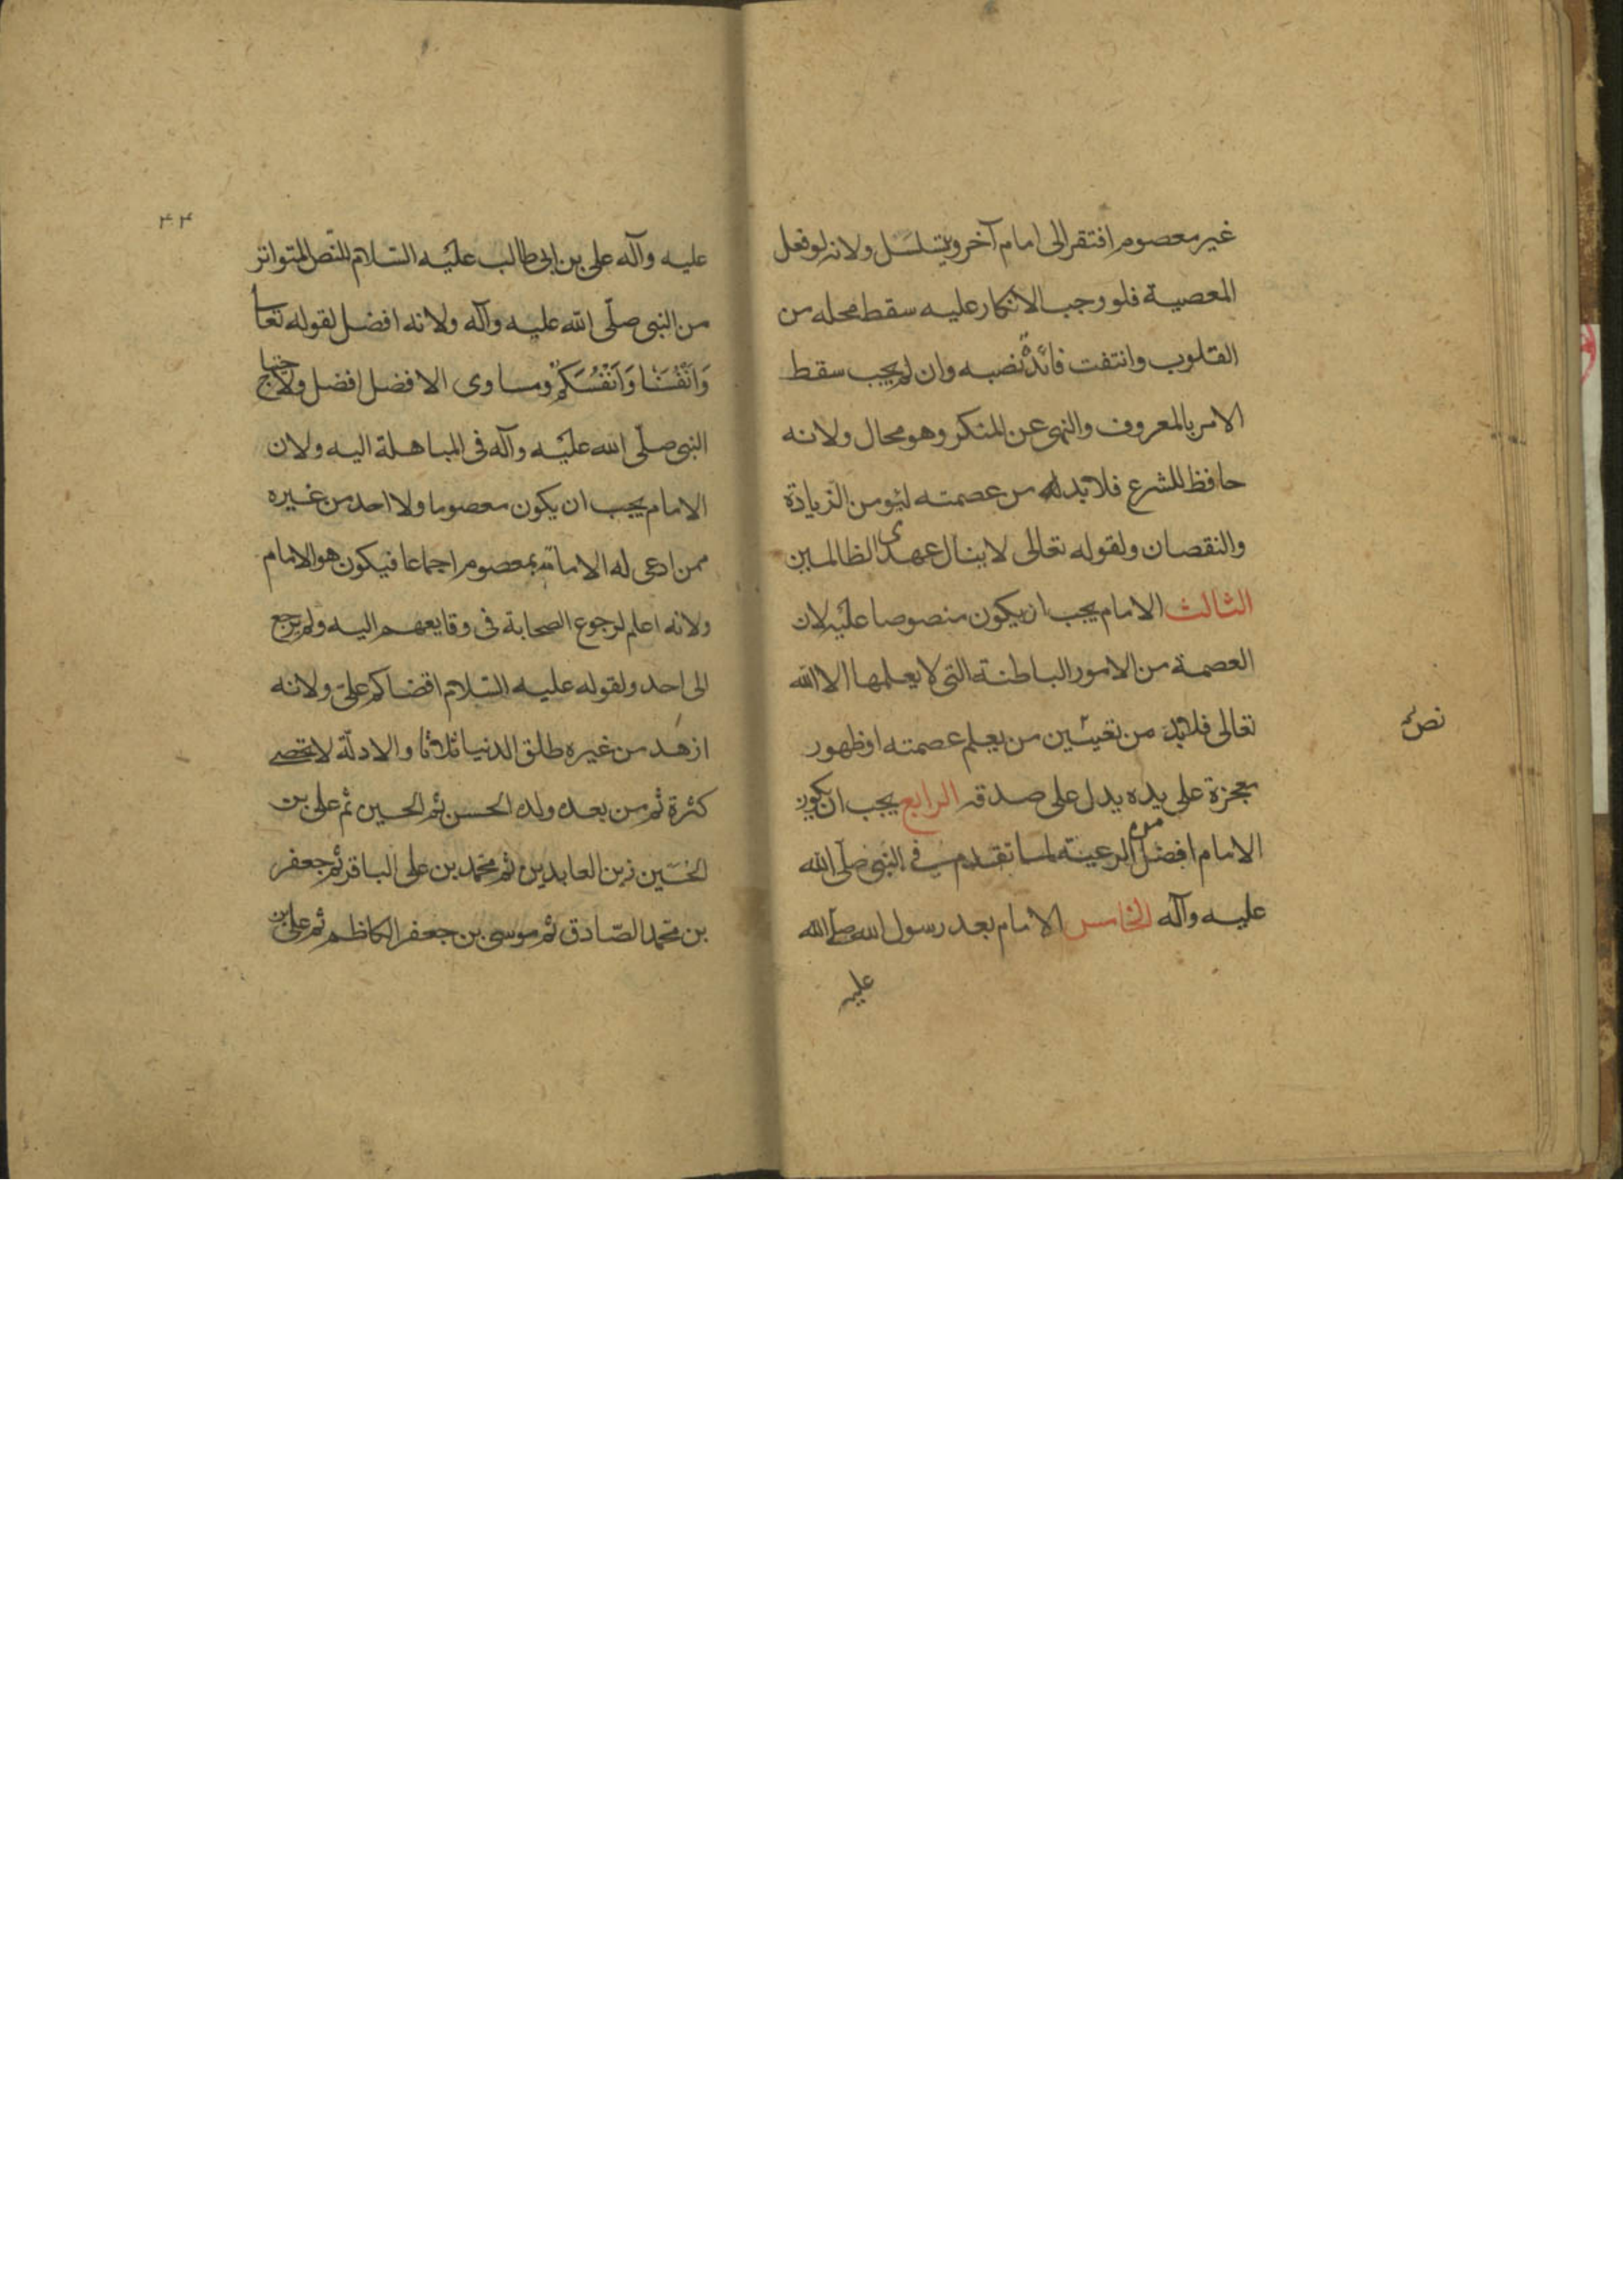 غير معصوم افتقر الى امام آخر ويتسلسل ولانه لو فعل
المعصية فلو وجب الانكار عليه سقط محله من
القلوب وانتفت فائدة نصبه وان لم يجب سقط
الامر بالمعروف والنهى عن المنكر وهو محال ولانه
حافظ للشرع فلا بد له من عصمته ليؤمن الزيادة
والنقصان ولقوله تعالى لا ينال عهدى الظالمين
الثالث الامام يجب ان يكون منصوصا عليه لان
العصمة من الامور الباطنة التى لا يعلمها الا الله
تعالى فلا بد من تعيين من يعلم عصمته او ظهور
نص
معجزة على يده يدل على صدقه الرابع يجب ان يكون
الامام افضل الرعية لما تقدم فى النبى صلى الله
عليه وآله الخامس الامام بعد رسول الله صلى الله
عليه
۴۴
عليه وآله على بن ابى طالب عليه السلام للنص المتواتر
من النبى صلّى الله عليه وآله ولانه افضل لقوله تعا
وَاَنْفُسَنَا وَاَنْفُسَكُمْ ومساوى الافضل افضل ولاحتياج
النبى صلّى الله عليه وآله فى المباهلة اليه ولان
الامام يجب ان يكون معصوما ولا احد من غيره
ممن ادعى له الامامة بمعصوم اجماعا فيكون هو الامام
ولانه اعلم لرجوع الصحابة فى وقايعهم اليه ولم يرجع
الى احد ولقوله عليه السّلام اقضاكم علىّ ولانه
ازهد من غيره طلق الدنيا ثلاثا والادلّة لا تحصى
كثرة ثم من بعده ولده الحسن ثم الحسين ثم على بن
الحسين زين العابدين ثم محمد بن على الباقر ثم جعفر
بن محمد الصّادق ثم موسى بن جعفر الكاظم ثم على بن